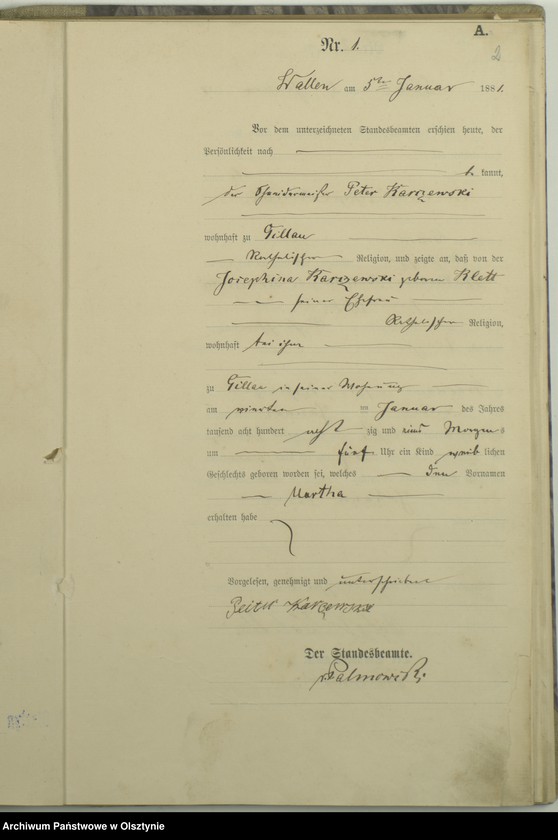 A.
2
Nr. 1.
Wallen am 5ten Januar 1881.
Vor dem unterzeichneten Standesbeamten erschien heute, der
Persönlichkeit nach
be kannt,
der Schneidermeister Peter Karczewski
wohnhaft zu Gillau
Katholischer Religion, und zeigte an, daß von der
Josephina Karczewski geboren Klett
seiner Ehefrau
Katholischer Religion,
wohnhaft bei ihm
zu Gillau in seiner Wohnung
am vierten ten Januar des Jahres
tausend acht hundert acht zig und eins Morgens
um fünf Uhr ein Kind weib lichen
Geschlechts geboren worden sei, welches den Vornamen
Martha
erhalten habe
Vorgelesen, genehmigt und unterschrieben
Peter Karczewski
Der Standesbeamte.
Palmowski
Archiwum Państwowe w Olsztynie